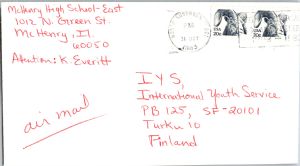 McHenry High School-East
1012 N. Green St.
McHenry, Il.
60050
Attention: K. Everitt
air mail
USA
20c
USA
20c
IYS,
International Youth Service
PB 125, SF-20101
Turku 10
Finland